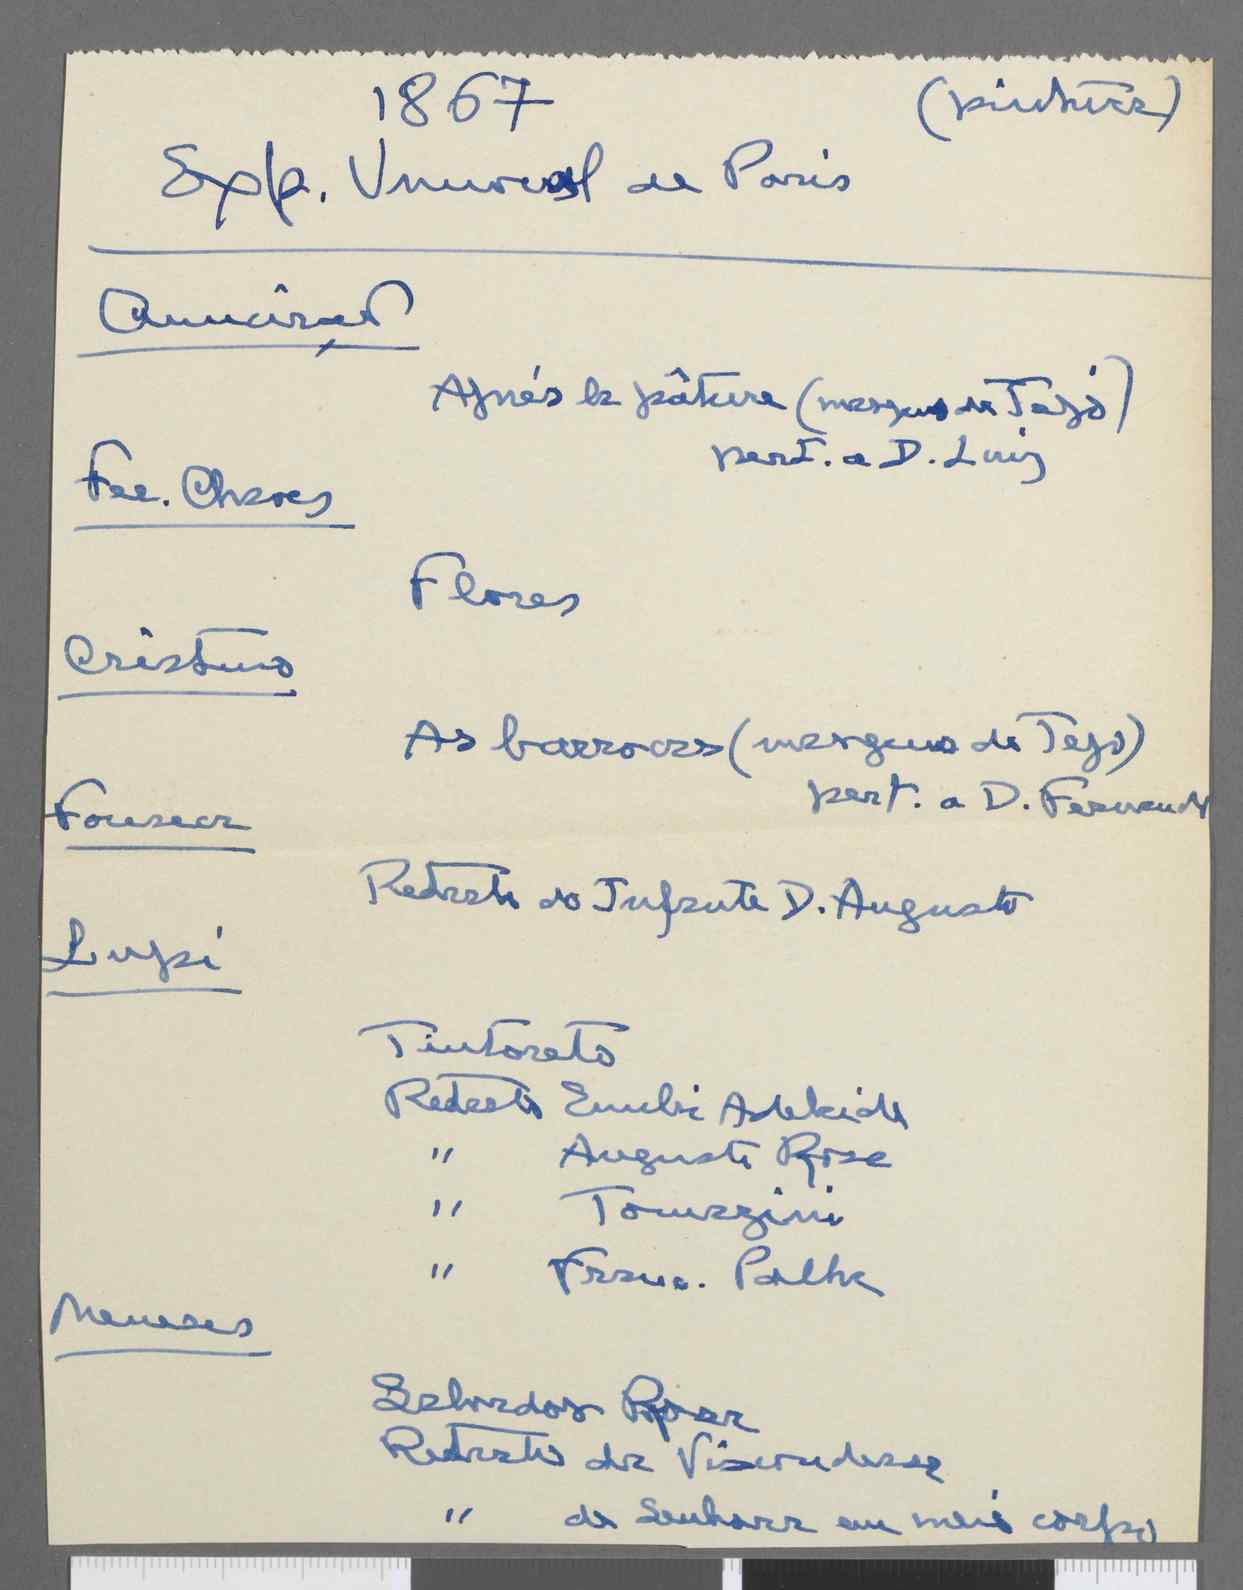 1867 (pintura)
Exp. Universal de Paris
Anunciação
Après la pâture (margens do Tejo)
pert. a D. Luis
Fee. Chaves
Flores
Cristino
As barrocas (margens do Tejo)
pert. a D. Fernando
Fonseca
Retrato do Infante D. Augusto
Lupi
Tintoreto
Retrato Emilia Adelaide
" Augusto Rosa
" Tomazini
" Franc. Palha
Meneses
Salvador Rosa
Retrato da Viscondessa
" de Senhora em meio corpo